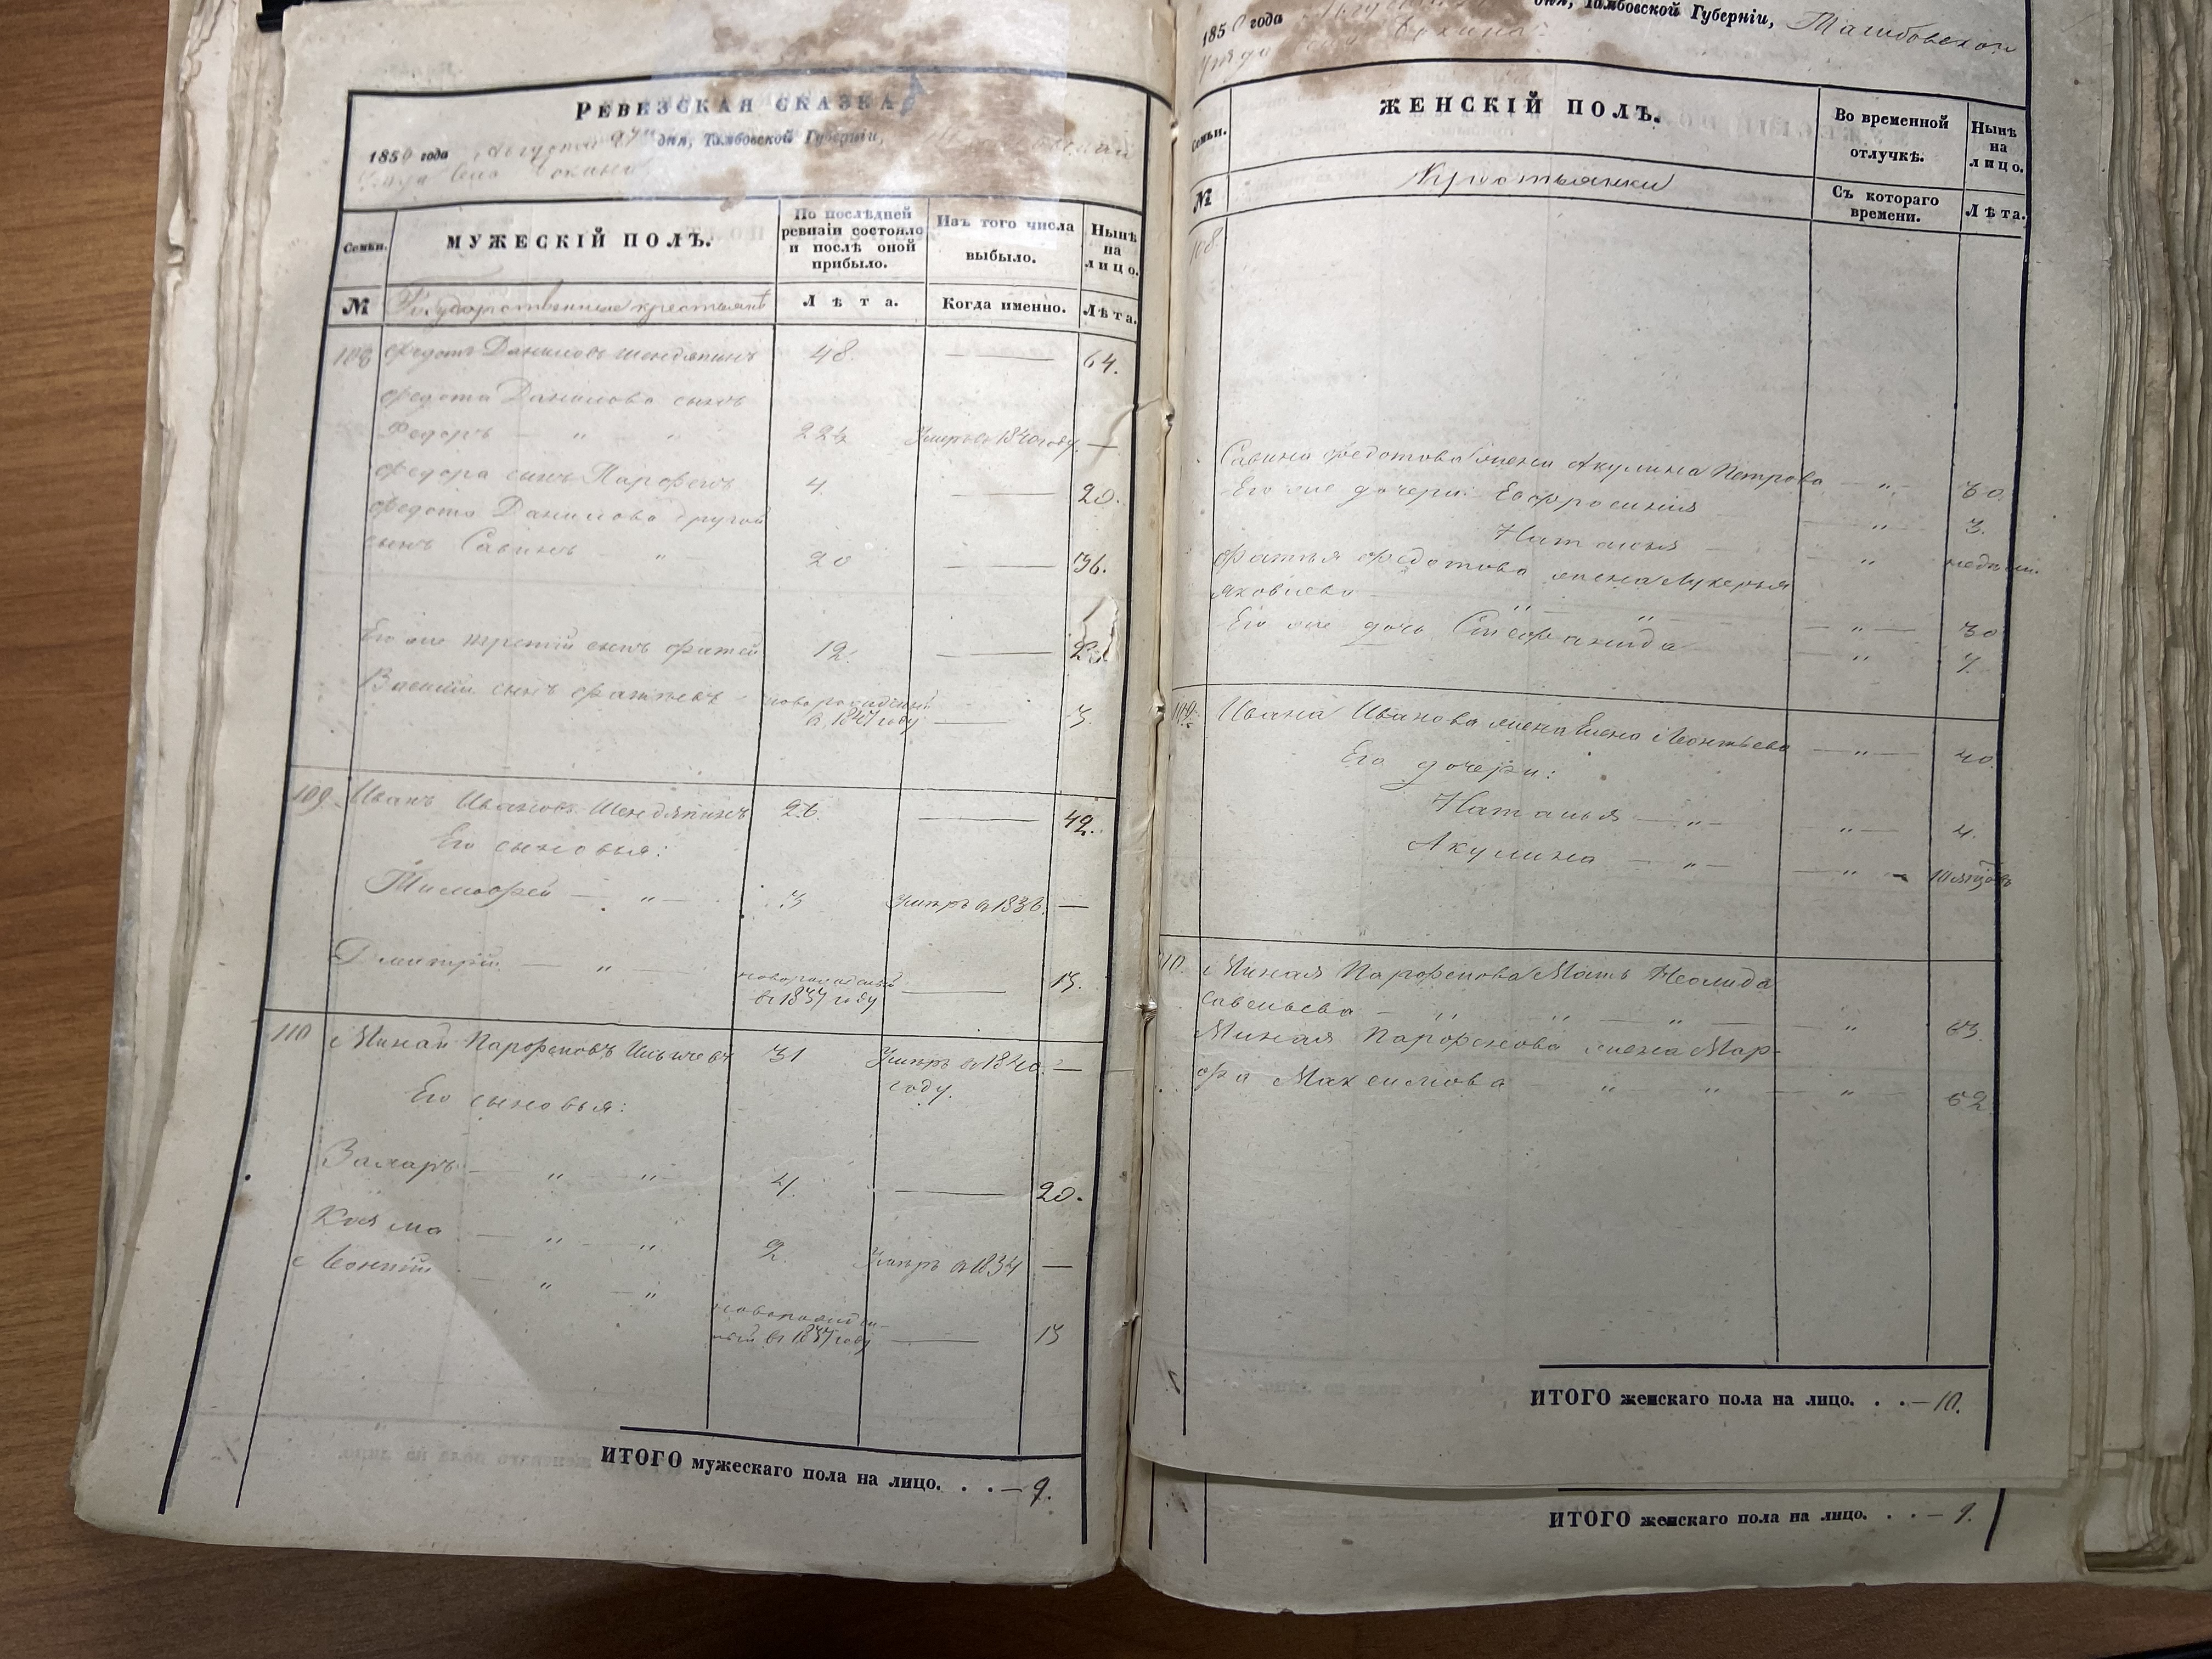 РЕВИЗСКАЯ СКАЗКА
1850 года Августа дня, Тамбовской Губерніи,
Уезда Села
Семьи.
МУЖЕСКІЙ ПОЛЪ.
По послѣдней ревизіи состояло и послѣ оной прибыло.
Изъ того числа выбыло.
Нынѣ на лицо.
№
Государственные крестьяне
Лѣта.
Когда именно.
Лѣта.
108 Федотъ Даниловъ Шендяпинъ 48. — 64.
Федота Данилова сынъ
Федоръ — " " 22½ Умеръ въ 1840 году. —
Федора сынъ Парфенъ 4. — 20.
Федота Данилова другой
сынъ Савинъ — " — 20 — 36.
Его же третій сынъ Фатей 12. —
Василій сынъ Фатѣевъ - новорожденный — 3.
в 1847 году
109. Иванъ Ивановъ Шендяпинъ 26. — 42.
Его сыновья:
Тимофей — " — 3 Умеръ в 1836. —
Дмитрій — " — новорожденный — 13.
въ 1837 году
110 Минай Парфеновъ 31 Умеръ въ 1840. —
году.
Его сыновья:
Захаръ — " — " 4. — 20.
Козма — " — " 2. Умеръ в 1834 —
Леонтій — " — " новорожден-
ный въ 1837 году — 13
ИТОГО мужескаго пола на лицо. . . — 9.
1850 года дня, Тамбовской Губерніи, Тамбовскои
уѣзда села
Семьи.
ЖЕНСКІЙ ПОЛЪ.
Во временной отлучкѣ.
Нынѣ на лицо.
№
Крестьянки
Съ котораго времени.
Лѣта.
108.
Савина Федотова жена Акулина Петрова — " — 30.
Его же дочери: Евфросинія — " — 3.
Наталья — " —
Фатѣя Федотова жена Лукерья
Яковлева — " — " — " — 30
Его же дочь Стефанида — " — 7.
109. Ивана Иванова жена Елена Леонтьева — " — 40.
Его дочери:
Наталья — " — " — 4.
Акулина — " — " — 10 мѣсяцовъ
110. Миная Парфенова Мать
Савельева — " " — " — " 63.
Миная Парфенова жена Мар-
фа Максимова — " " — " — 52.
ИТОГО женскаго пола на лицо. . . — 10.
ИТОГО женскаго пола на лицо. . . — 9.